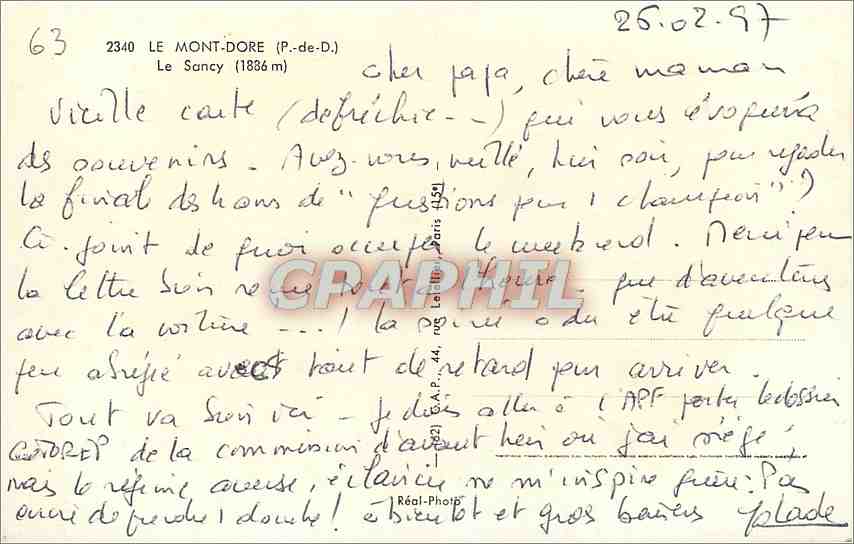 63
26.02.97
2340 LE MONT-DORE (P.-de-D.)
Le Sancy (1886 m)
cher papa, chère maman
Vieille carte (défréchie - -) qui vous évoquera
des souvenirs - Avez-vous veillé, hier soir, pour regarder
la finale des hans de "questions pour 1 champion"?
Ci-joint de quoi occuper le weekend. Merci pour
la lettre bien reçue tout à l'heure - que d'aventures
avec la voiture ---! la soirée a du être quelque
peu abrégée avec tout de retard pour arriver.
Tout va bien ici - Je dois aller à l'APF porter le dossier
COTOREP de la commission d'avant hier où j'ai siégé;
mais le régime averse, éclaircie ne m'inspire guère: Pas
envie de prendre 1 douche! à bientôt et gros baisers
CPAPHIL
A.P., 44, rue Letellier, Paris (15e)
Réal-Photo